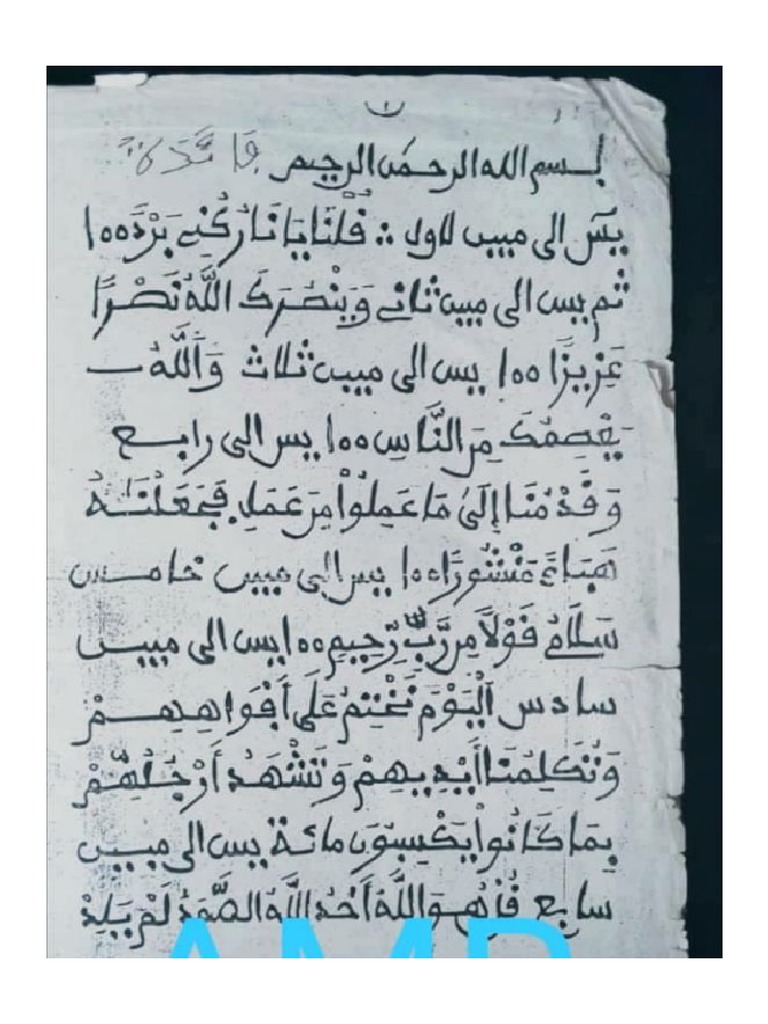 ١
بسم الله الرحمن الرحيم فائدة
يس الى مبين لاول ∴ قُلْنَا يَا نَارُ كُنِے بَرْدًا ١٠٠
ثم يس الى مبين ثانے وَيَنْصُرَكَ اللَّهُ نَصْرًا
عَزِيزًا ١٠٠ يس الى مبين ثلاث وَاللَّهُ
يَعْصِمُكَ مِنَ النَّاسِ ١٠٠ يس الى رابع
وَقَدِمْنَا إِلَىٰ مَا عَمِلُواْ مِنْ عَمَلٍ فَجَعَلْنَـٰهُ
هَبَاءً مَنْثُورًا ١٠٠ يس الى مبين خامس
سَلَامٌ قَوْلًا مِن رَّبٍّ رَّحِيمٍ ١٠٠ يس الى مبين
سادس اَلْيَوْمَ نَخْتِمُ عَلَى أَفْوَاهِهِمْ
وَتُكَلِمُنَا أَيْدِيهِمْ وَتَشْهَدُ أَرْجُلُهُمْ
بِمَا كَانُواْ يَكْسِبُونَ مائة يس الى مبين
سابع قُلْ هُوَ اللَّهُ أَحَدٌ اللَّهُ الصَّمَدُ لَمْ يَلِدْ
AMB